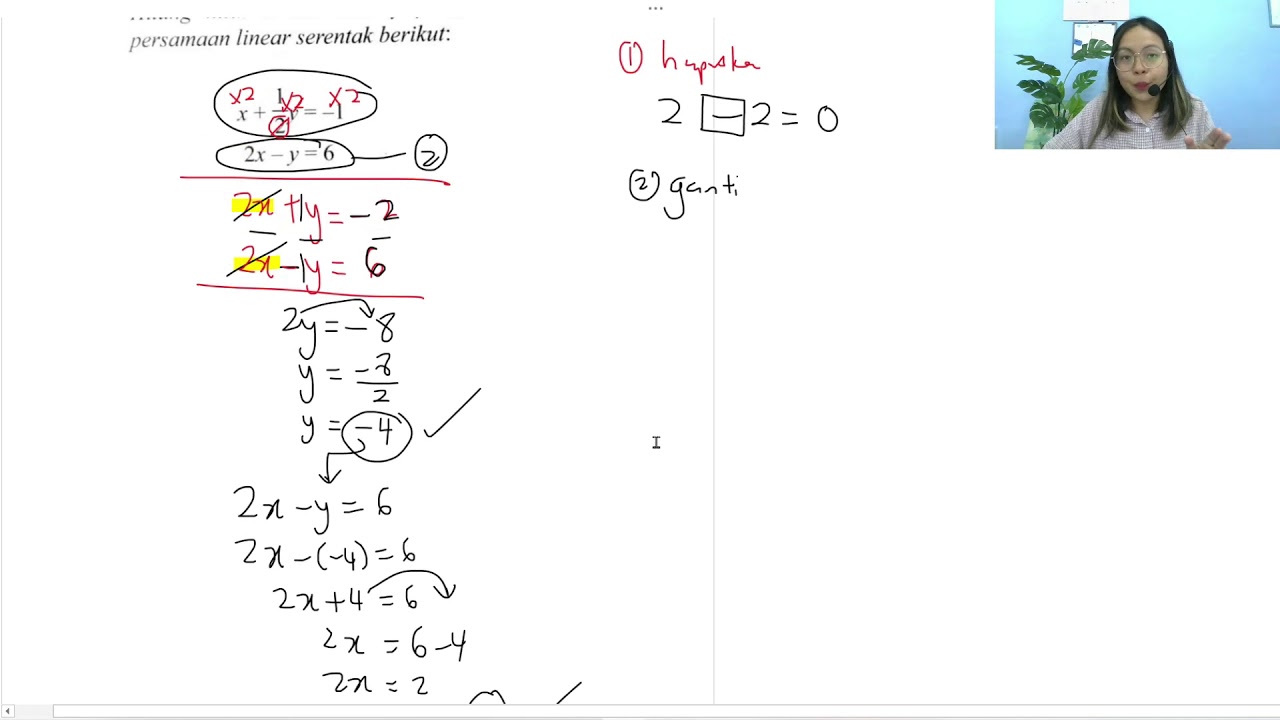 persamaan linear serentak berikut:
x + 1/2 y = -1
×2 ×2 ×2
2x - y = 6 ②
2x + 1y = -2
2x - 1y = 6
2y = -8
y = -8/2
y = -4
2x - y = 6
2x - (-4) = 6
2x + 4 = 6
2x = 6 - 4
2x = 2
① hapuskan
2 - 2 = 0
② ganti